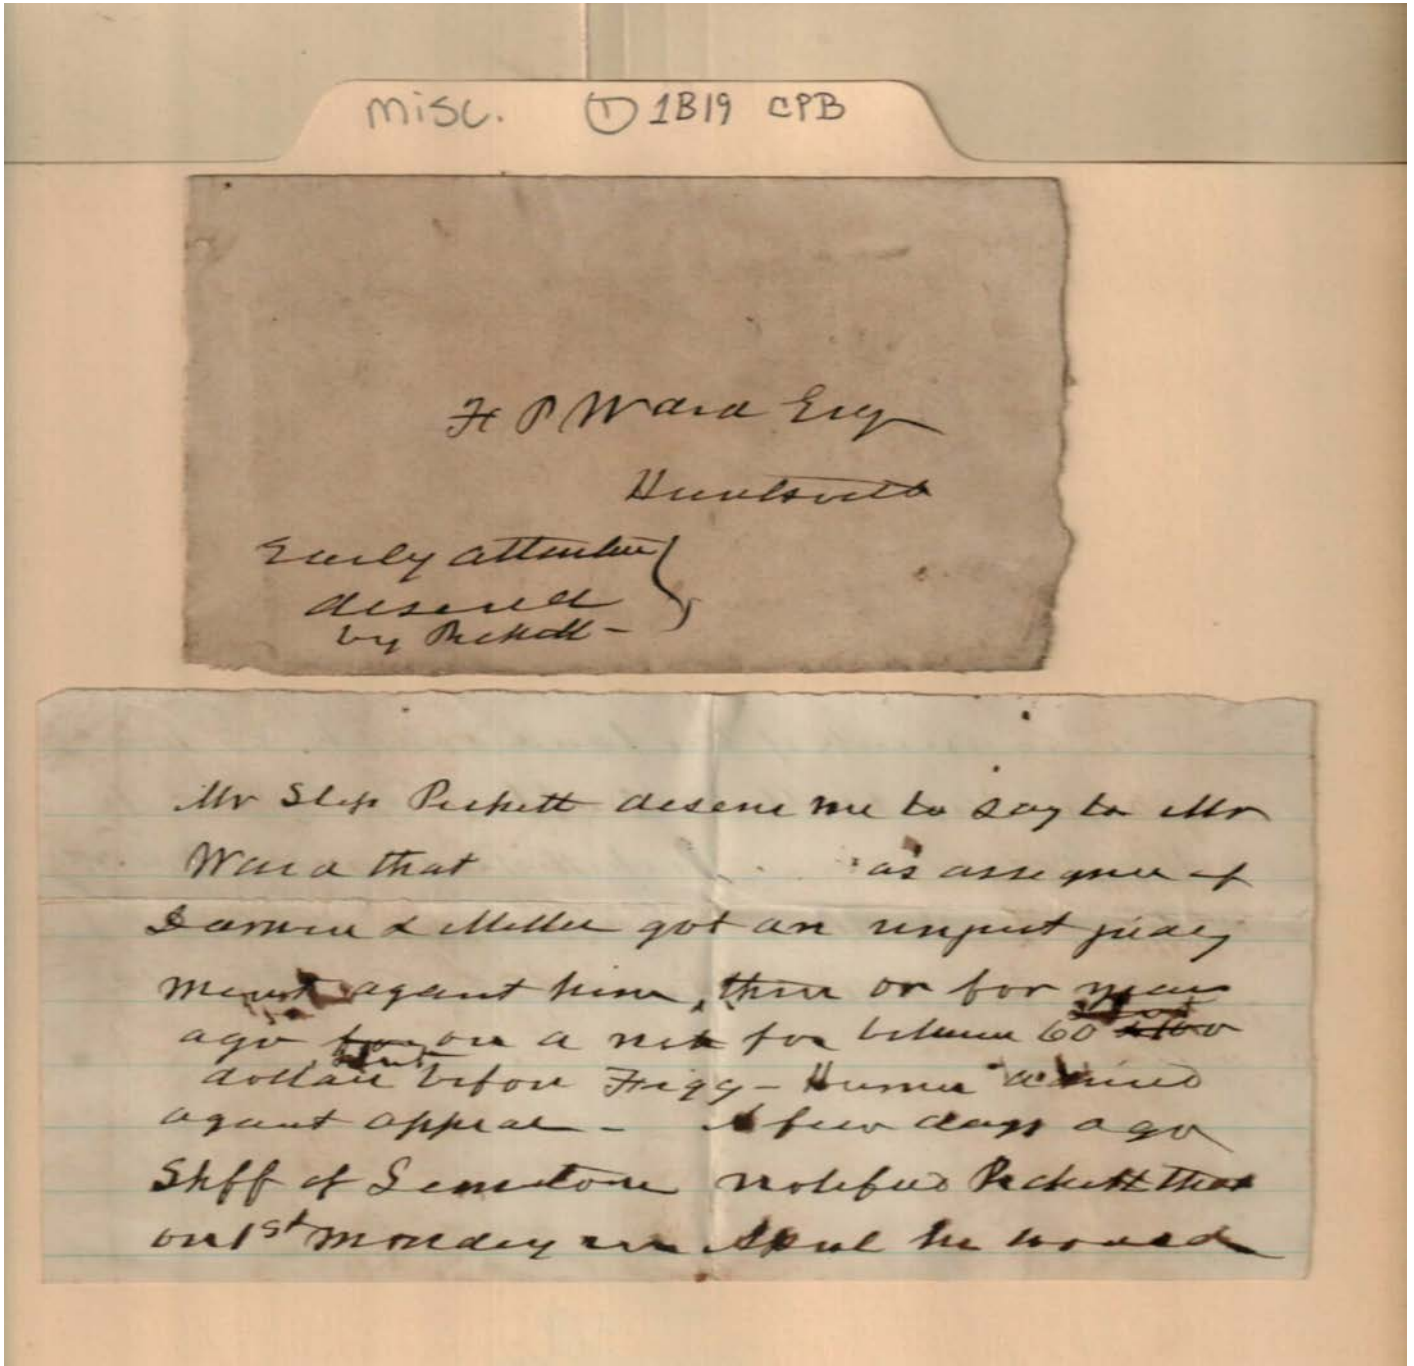 misc. ① 1B19 CPB
F P Ward Esq
Huntsville
Early attention
desired
by Pickett -
Mr Step Pickett desires me to say to Mr
Ward that as assignee of
& Miller got an unjust judg
ment against him, three or for years
ago on a note for between 60
dollars before Figg - Humes advised
against appeal - A few days ago
Shff of Limestone notified Pickett that
on 1st Monday in April he would